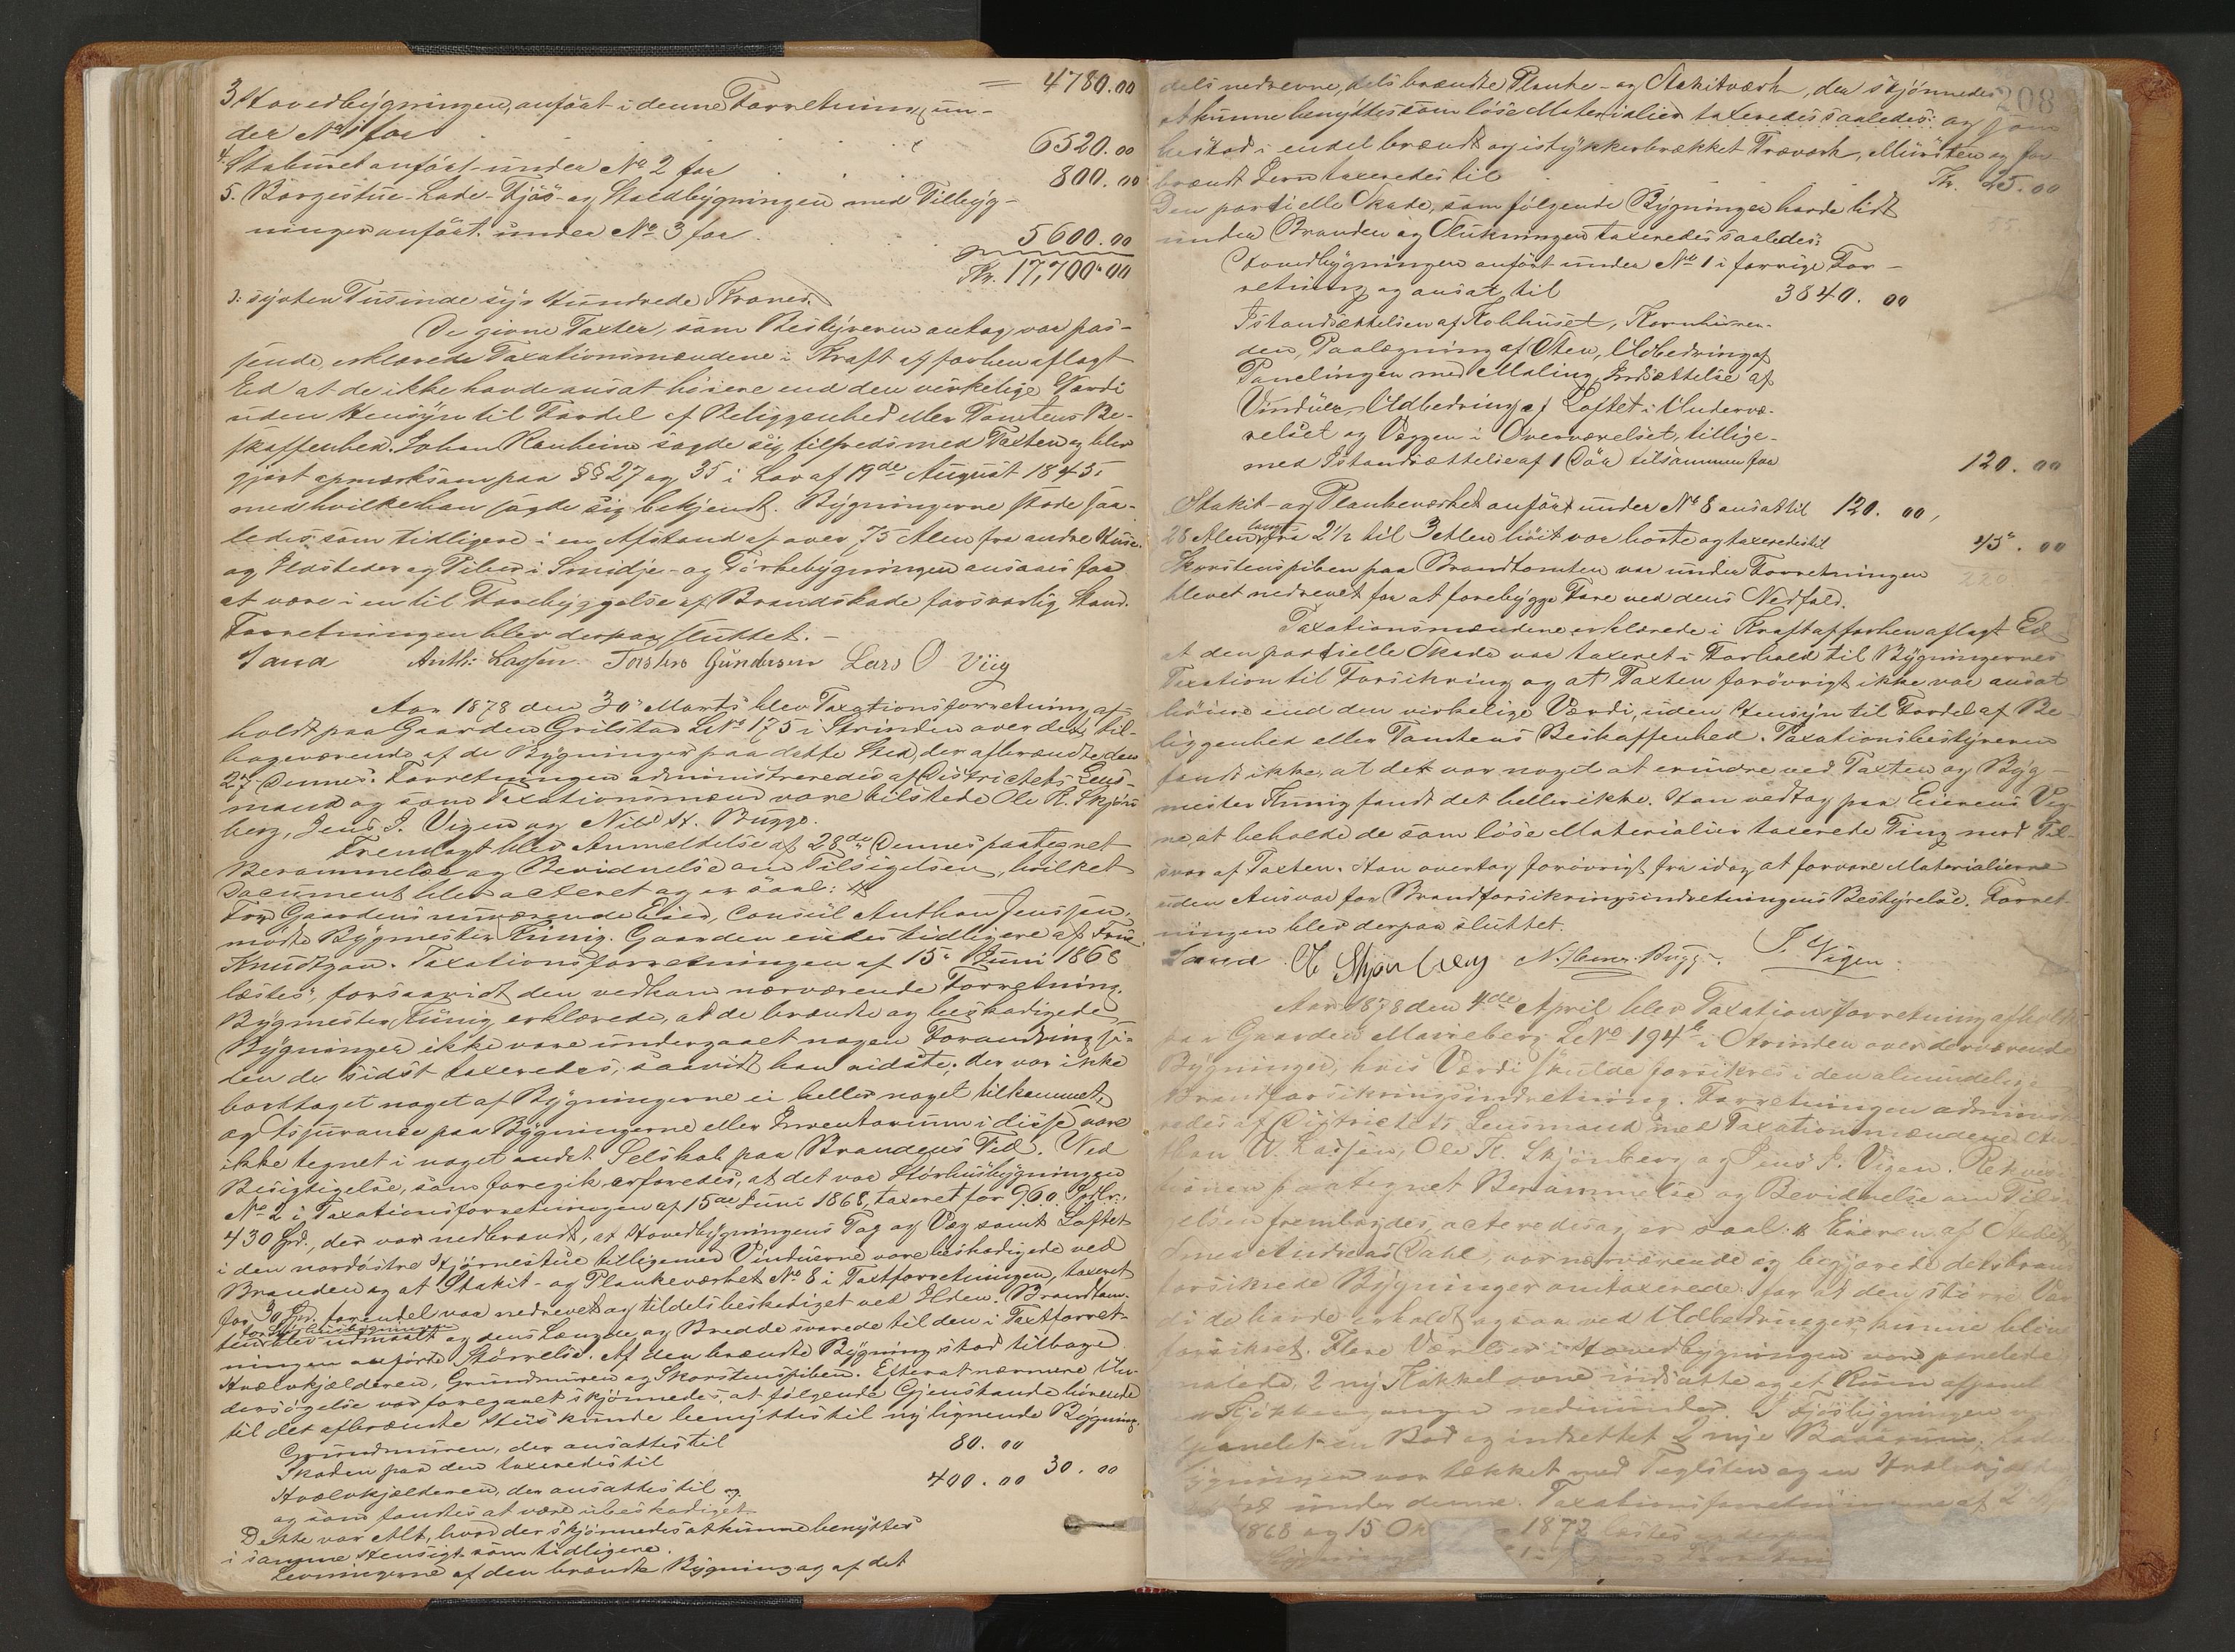 = 4780.00
3 Hovedbygningen, anført i denne Forretning un-
der No 1 for 6520.00
4. Staburet anført under No 2 for 800.00
5. Borgestue- Lade- Fjøs- og Staldbygningen med Tilbyg-
ninger anført under No 3 for 5600.00
Kr. 17,700.00
ɔ: sytten Tusinde syv Hundrede Kroner.
De givne Taxter, som Bestyreren antog var pas-
sende, erklærede Taxationsmændene i Kraft af forhen aflagt
Ed at de ikke havde ansat høiere end den virkelige Værdi
uden Hensyn til Fordel af Beliggenhed eller Tomtens Be-
skaffenhed. Johan Ranheim sagde sig tilfreds med Taxten og blev
gjort opmærksom paa §§ 27 og 35 i Lov af 19de August 1845,
med hvilke han sagde sig bekjendt. Bygningerne stode saa-
ledes som tidligere i en Afstand af over 75 Alen fra andre Huse
og Ildsteder og Piber i Smidje- og Tørkebygningen ansaaes for
at være i en til Forebyggelse af Brandskade forsvarlig Stand.
Forretningen blev derpaa sluttet. –
Sand Anth: Lassen. Torsten Gundersen Lars O Viig
Aar 1878 den 30' Marts blev Taxationsforretning af-
holdt paa Gaarden Grilstad LNo 175 i Strinden over det til-
bageværende af de Bygninger paa dette Sted, der afbrændte den
27 Dennes. Forretningen administreredes af Districtets Lens-
mand og som Taxationsmænd vare tilstede Ole K. Skjøn-
berg, Jens J. Vigen og Nils H. Bugge.
Fremlagt blev Anmeldelse af 28de Dennes paategnet
Berammelse og Bevidnelse om Tilsigelsen, hvilket
Document blev acteret og er saal:
For Gaardens nuværende Eier, Consul Anthon Jenssen,
mødte Bygmester Künig. Gaarden eiedes tidligere af Frue
Knudtzon. Taxationsforretningen af 15' Juni 1868
læstes, forsaavidt den vedkom nærværende Forretning.
Bygmester Künig erklærede, at de brændte og beskadigede
Bygninger ikke vare undergaaet nogen Forandring si-
den de sidst taxeredes, saavidt han vidste; der var ikke
borttaget noget af Bygningerne ei heller noget tilkommet,
og Assurance paa Bygningerne eller Inventarium i disse vare
ikke tegnet i noget andet Selskab paa Brandens Tid. Ved
Besigtigelse, som foregik erfaredes, at det var Storhusbygningen
No 2 i Taxationsforretningen af 15de Juni 1868, taxeret for 960 Spdlr.,
430 Spd., der var nedbrændt, at Hovedbygningens Tag og Væg samt Loftet
i den nordøstre Hjørnestue tilligemed Vinduerne vare beskadigede ved
Branden og at Stakit- og Plankeværket No 8 i Taxtforretningen, taxeret
for 30 Spd. for en del var nedrevet og tildels beskadiget ved Ilden. Brandtom-
for Storhusbygningen
ten blev udmaalt og dens Længde og Bredde svarede til den i Taxtforret-
ningen anførte Størrelse. Af den brændte Bygning stod tilbage
Hvælvkjælderen, Grundmuren og Skorstenspiben. Efter at nærmere Un-
dersøgelse var foregaaet skjønnedes, at følgende Gjenstande hørende
til det afbrændte Huus kunde benyttes til ny lignende Bygning.
Grundmuren, der ansattes til 80.00
Skaden paa den taxeredes til 30.00
Hvælvkjælderen, der ansattes til 400.00
og som fandtes at være ubeskadiget.
Dette var Alt, hvad der skjønnedes at kunne benyttes
i samme Hensigt som tidligere.
Levningerne af den brændte Bygning og af det
208
dels nedrevne, dels brændte Planke- og Stakitværk, der skjønnedes
at kunne benyttes som løse Materialier taxeredes saaledes: og som
bestod i en del brændt og istykkerbrækket Træværk, Mursten og for-
brændt Jern taxeredes til Kr. 25.00
Den partielle Skade, som følgende Bygninger havde lidt
under Branden og Slukningen taxeredes saaledes:
Hovedbygningen anført under No 1 i forrige For-
retning og ansat til 3840.00
Istandsættelsen af Kobhuset, Kornhusren-
den, Paalægning af Sten, Udbedring af
Panelingen med Maling, Indsættelse af
Vinduer, Udbedring af Loftet i Undervæ-
relset og Væggen i Overværelset, tillige-
med Istandsættelse af 1 Dør tilsammen for 120.00
Stakit- og Plankeværket anført under No 8 ansat til 120.00,
langt
28 Alen fra 2 1/2 til 3 Alen høit var borte og taxeredes til 45.00
Skorstenspiben paa Brandtomten var under Forretningen
blevet nedrevet for at forebygge Fare ved dens Nedfald.
Taxationsmændene erklærede i Kraft af forhen aflagt Ed
at den partielle Skade var taxeret i Forhold til Bygningernes
Taxation til Forsikring og at Taxten forøvrigt ikke var ansat
høiere end den virkelige Værdi, uden Hensyn til Fordel af Be-
liggenhed eller Tomtens Beskaffenhed. Taxationsbestyreren
fandt ikke, at det var noget at erindre ved Taxten og Byg-
mester Künig fandt det heller ikke. Han vedtog paa Eierens Veg-
ne at beholde de som løse Materialier taxerede Ting mod Til-
svar af Taxten. Han overtog forøvrigt fra idag at forvare Materialierne
uden Ansvar for Brandforsikringsindretningens Bestyrelse. Forret-
ningen blev derpaa sluttet.
Sand O K Skjønberg N. Hemr. Bugge. J. Vigen.
Aar 1878 den 4de April blev Taxationsforretning afholdt
paa Gaarden Moireberg LNo 194 i Strinden over derværende
Bygninger, hvis Værdi skulde forsikres i den almindelige
Brandforsikringsindretning. Forretningen administre-
redes af Districtets Lensmand med Taxationsmændene An-
thon W. Lassen, Ole K. Skjønberg og Jens J. Vigen. Rekvisi-
tionen paategnet Berammelse og Bevidnelse om Tilsi-
gelsen frembødes, acteredes og er saal: Eieren af Stedet,
Andreas Dahl, var nærværende og begjærede de i brand-
forsikrede Bygninger omtaxerede for at den større Vær-
di de havde erholdt ogsaa ved Udbedringer, kunne blive
forsikret. Flere Værelser i Hovedbygningen vare panelede
malede 2 ny Kakkelovne indsatte og et Rum afpanel
Kjøkkengangen nedenunder. I Fjøsbygningen var
panelet en Bod og indrettet 2 nye Baasrum,
bygningen var tækket med Teglsten og en Hvælvkjælder
under denne. Taxationsforretningerne af 2
1868 og 15 Ok 1872 læstes og derpaa